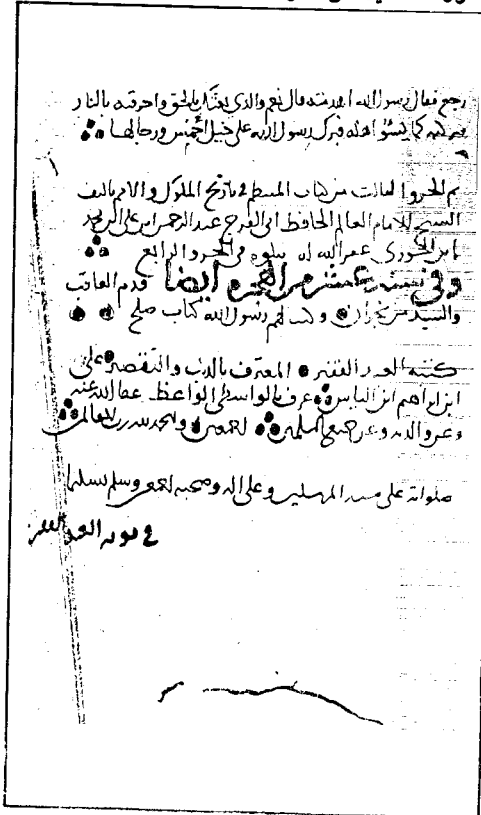 رجع فقال رسول الله اهدمته قال نعم والذي بعثك بالحق واحرقته بالنار
فتركته كما يسؤ اهله فبرك رسول الله على خيل احمس ورجالها
تم الجزو الثالث من كتاب المنتظم في تاريخ الملوك والامم تاليف
الشيخ الامام العالم الحافظ ابي الفرج عبد الرحمن ابن علي ابن محمد
ابن الجوزي غفر الله له يتلوه في الجزو الرابع
وفي سنة عشر من الهجرة ايضا قدم العاقب
والسيد من نجران وكتب لهم رسول الله كتاب صلح
كتبه العبد الفقير المعترف بالذنب والتقصير علي
ابن ابراهيم ابن الياس عرف بالواسطي الواعظ عفا الله عنه
وعن والديه وعن جميع المسلمين اجمعين والحمد لله رب العالمين
صلواته على سيد المرسلين وعلى اله وصحبه اجمعين وسلم تسليما
في نوبة العبد الفقير